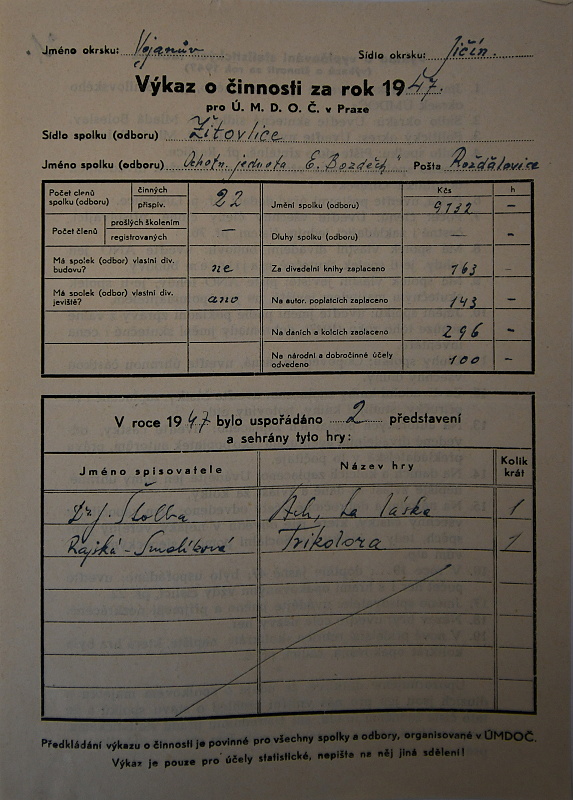 Jméno okrsku: Vojanův Sídlo okrsku: Jičín.
Výkaz o činnosti za rok 1947.
pro Ú. M. D. O. Č. v Praze
Sídlo spolku (odboru) Žitovlice
Jméno spolku (odboru) Ochotn. jednota „E. Bozděch" Pošta Rožďálovice
Kčs h
Počet členů spolku (odboru) činných přispív. 22 Jmění spolku (odboru) 9132 —
Počet členů prošlých školením registrovaných — Dluhy spolku (odboru) — -
Má spolek (odbor) vlastní div. budovu? ne Za divadelní knihy zaplaceno 163 -
Má spolek (odbor) vlastní div. jeviště? ano Na autor. poplatcích zaplaceno 143 -
Na daních a kolcích zaplaceno 296 -
Na národní a dobročinné účely odvedeno 100 -
V roce 1947 bylo uspořádáno 2 představení
a sehrány tyto hry:
Jméno spisovatele Název hry Kolikkrát
Dr. J. Štolba Ach, ta láska 1
Rajská - Smolíková Trikolora 1
Předkládání výkazu o činnosti je povinné pro všechny spolky a odbory, organisované v ÚMDOČ.
Výkaz je pouze pro účely statistické, nepište na něj jiná sdělení!